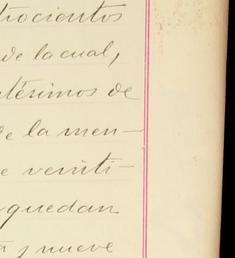 trocientos
de la cual,
ntésimos de
de la men-
e veinti-
quedan
y nueve